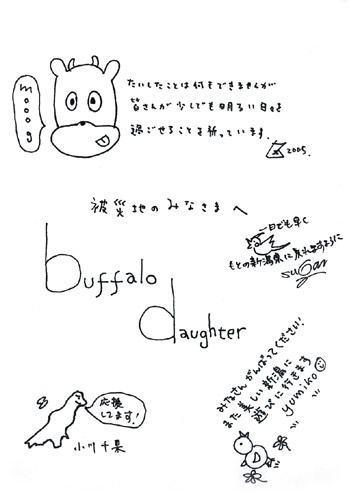 moooog
たいしたことは何もできませんが
皆さんが少しでも明るい日々を
過ごせることを祈っています。
2005.
被災地のみなさまへ
一日でも早く
もとの新潟県に戻れますように
suGar
buffalo
daughter
みなさんがんばってください!
また美しい新潟に
遊びに行きます
yumiko
応援
してます!
小川千果